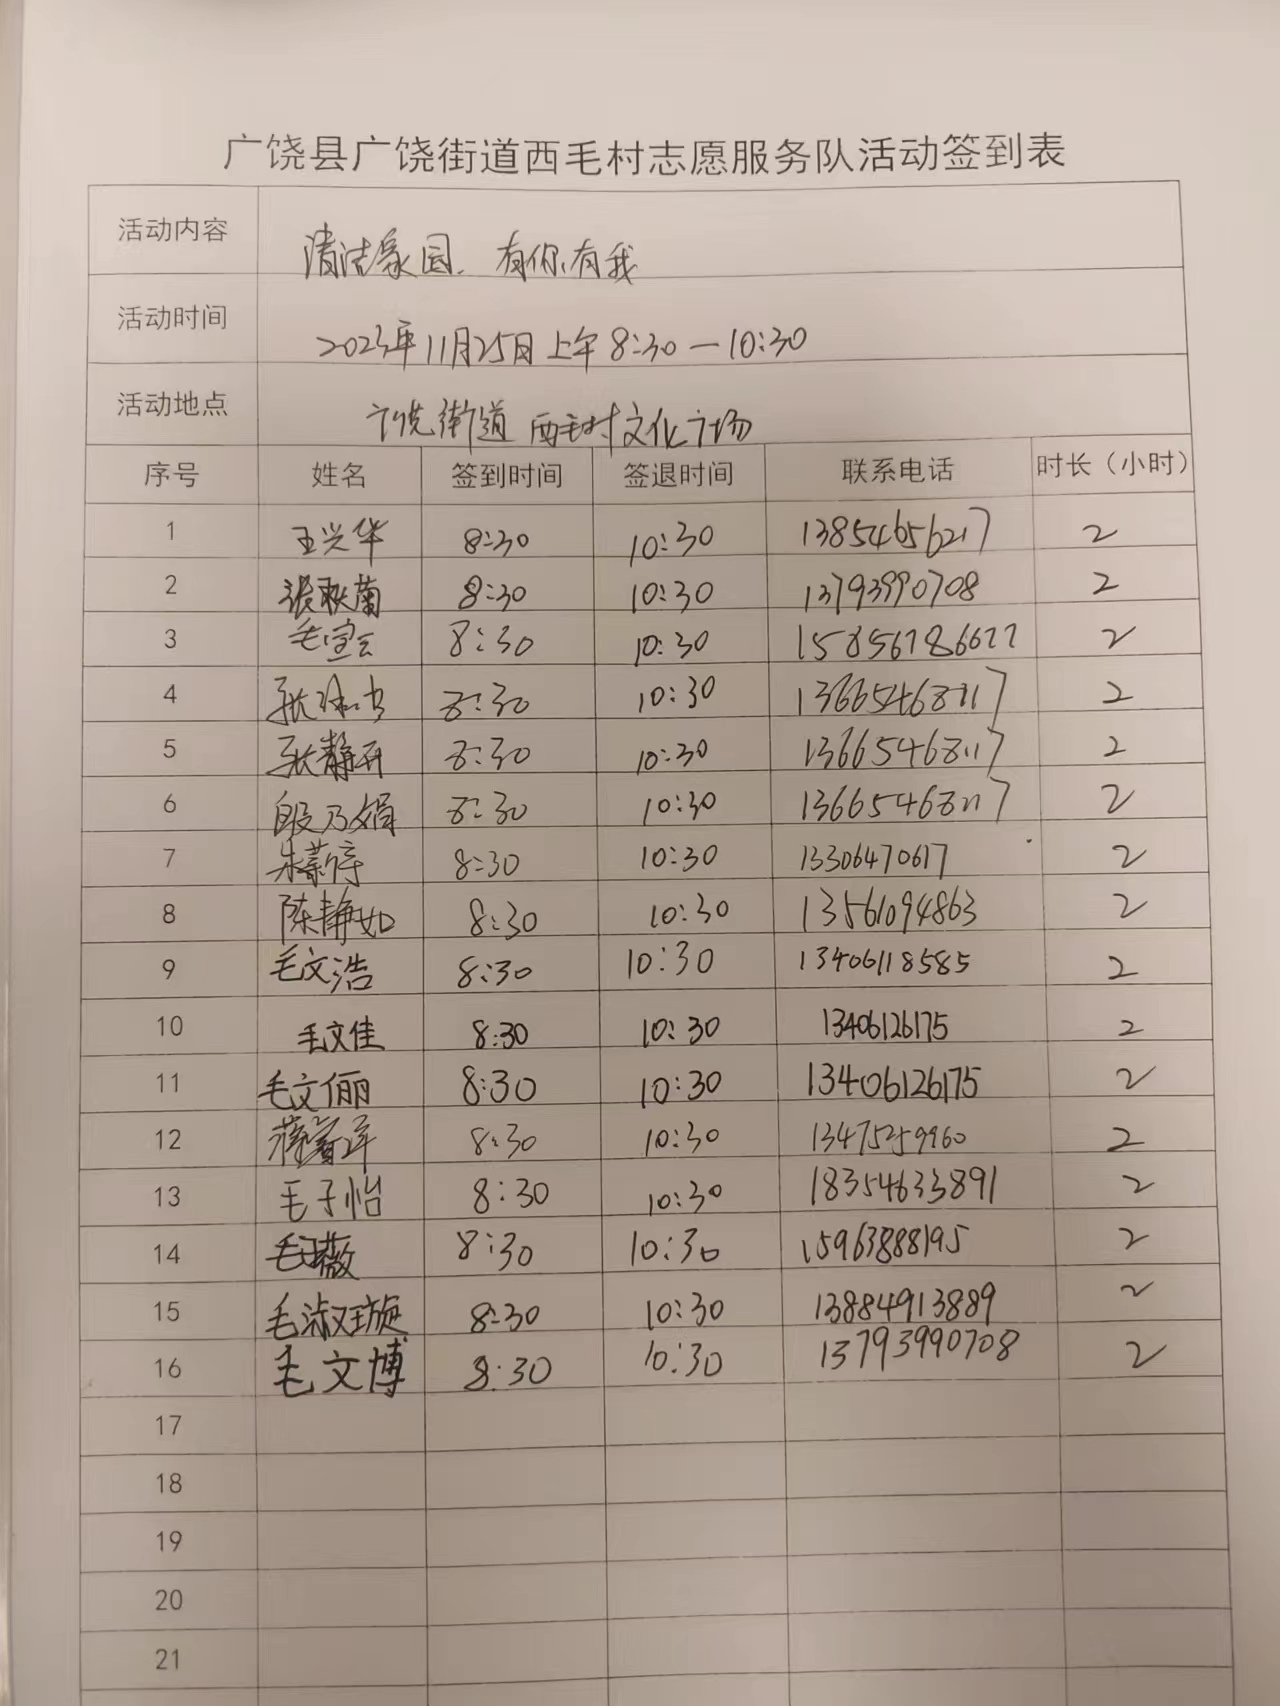 广饶县广饶街道西毛村志愿服务队活动签到表
活动内容 清洁家园、有你有我
活动时间 2023年11月25日上午8:30—10:30
活动地点 广饶街道西毛村文化广场
序号 姓名 签到时间 签退时间 联系电话 时长（小时）
1 王兴华 8:30 10:30 13854656217 2
2 张秋菊 8:30 10:30 13793990708 2
3 毛宝云 8:30 10:30 2
4 8:30 10:30 2
5 张静 8:30 10:30 2
6 殷乃娟 8:30 10:30 2
7 8:30 10:30 13306470617 2
8 陈静如 8:30 10:30 13561094863 2
9 毛文浩 8:30 10:30 13406118585 2
10 毛文佳 8:30 10:30 13406126175 2
11 毛文俪 8:30 10:30 13406126175 2
12 8:30 10:30 13475259960 2
13 毛子怡 8:30 10:30 18354633891 2
14 毛 薇 8:30 10:30 15963888195 2
15 毛淑璇 8:30 10:30 13884913889 2
16 毛文博 8:30 10:30 13793990708 2
17
18
19
20
21